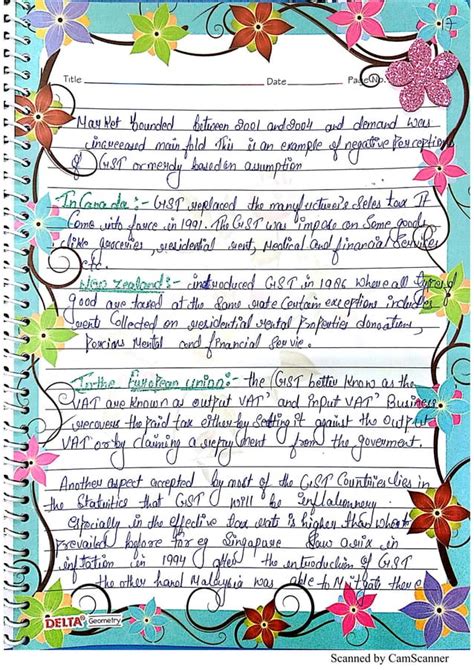 17
Title Date Page No.
Market bounded between 2001 and 2004 and demand was
increased main fold This is an example of negative Perception
of GST or merely based on assumption
In Canada :- GST replaced the manufacturer's Seles tax It
Come into force in 1991. The GST was impose on Some goods
like groceries, residential rent, Medical and financial Services
etc.
New Zealand :- introduced GST in 1986 where all types of
good are taxed at the Same rate Certain exceptions includes
rents Collected on residential rental Properties donations,
Metal and financial Servie.
In the European union :- the GST better Know as the
VAT are Known as output VAT' and input VAT' Business
recovers the paid tax either by setting it against the output
VAT or by claiming a repayment from the goverment.
Another aspect accepted by most of the GST Countries lies in
the that GST will be
Especially in the effective tax rate is higher than what
Prevailed before For eg Singapore Saw a
in 1994 after the introduction of GST
the other hand Malaysia was able to there
DELTA Geometry
Scanned by CamScanner